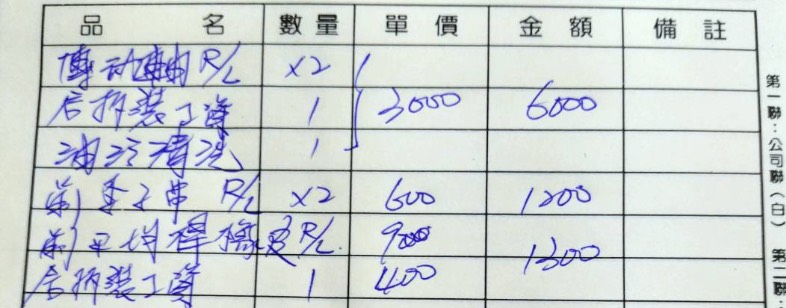 品名 數量 單價 金額 備註
傳动軸 R/L ×2
含拆裝工資 1 3000 6000
油污清洗 1
前李子串 R/L ×2 600 1200
前平均桿橡皮 R/L 900 1300
含拆裝工資 1 400
第一聯:公司聯(白) 第二聯: